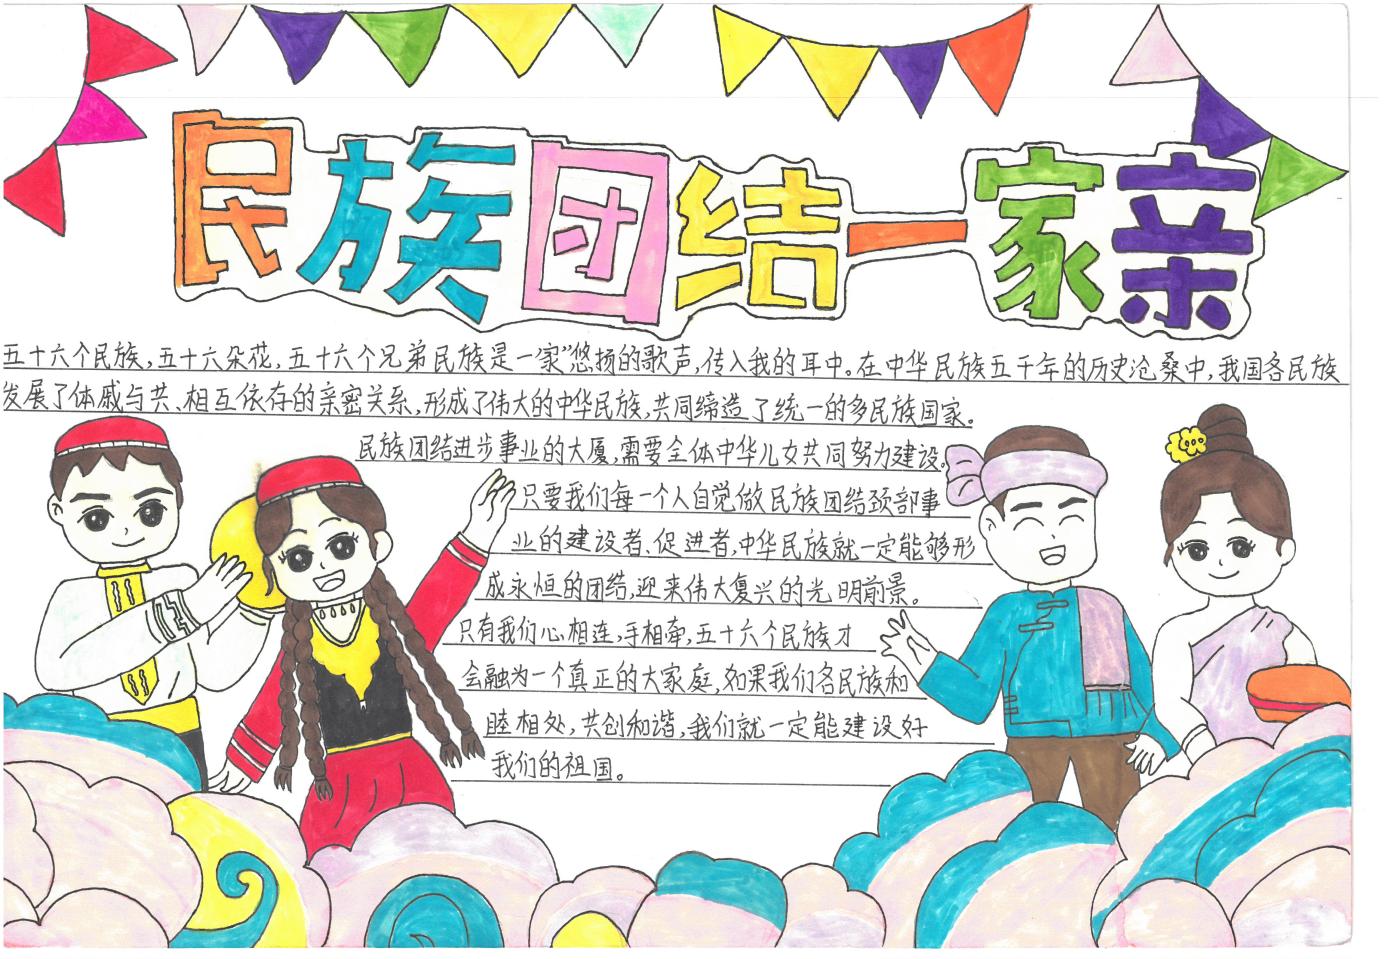 民族团结一家亲
五十六个民族,五十六朵花,五十六个兄弟民族是一家”悠扬的歌声,传入我的耳中。在中华民族五千年的历史沧桑中,我国各民族
发展了体戚与共、相互依存的亲密关系,形成了伟大的中华民族,共同缔造了统一的多民族国家。
民族团结进步事业的大厦,需要全体中华儿女共同努力建设。
只要我们每一个人自觉做民族团结颈部事
业的建设者、促进者,中华民族就一定能够形
成永恒的团结,迎来伟大复兴的光明前景。
只有我们心相连,手相牵,五十六个民族才
会融为一个真正的大家庭,如果我们各民族和
睦相处,共创和谐,我们就一定能建设好
我们的祖国。